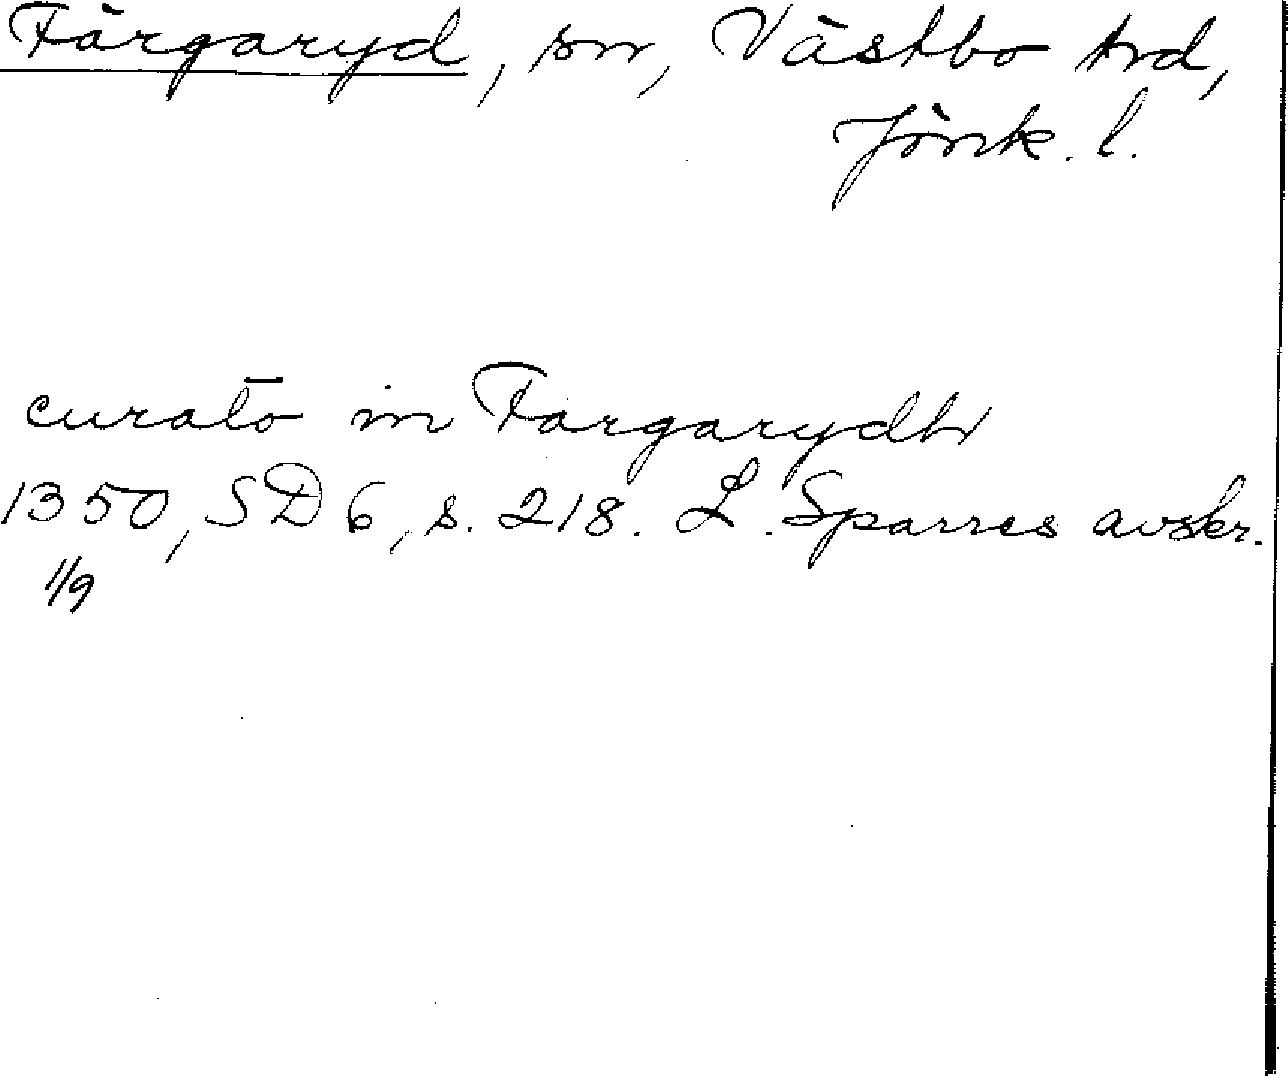 Färgaryd, sn, Västbo hrd,
Jönk. l.
curato in Fargarydh
1350, SD 6, s. 218. L. Sparres avskr.
1/9